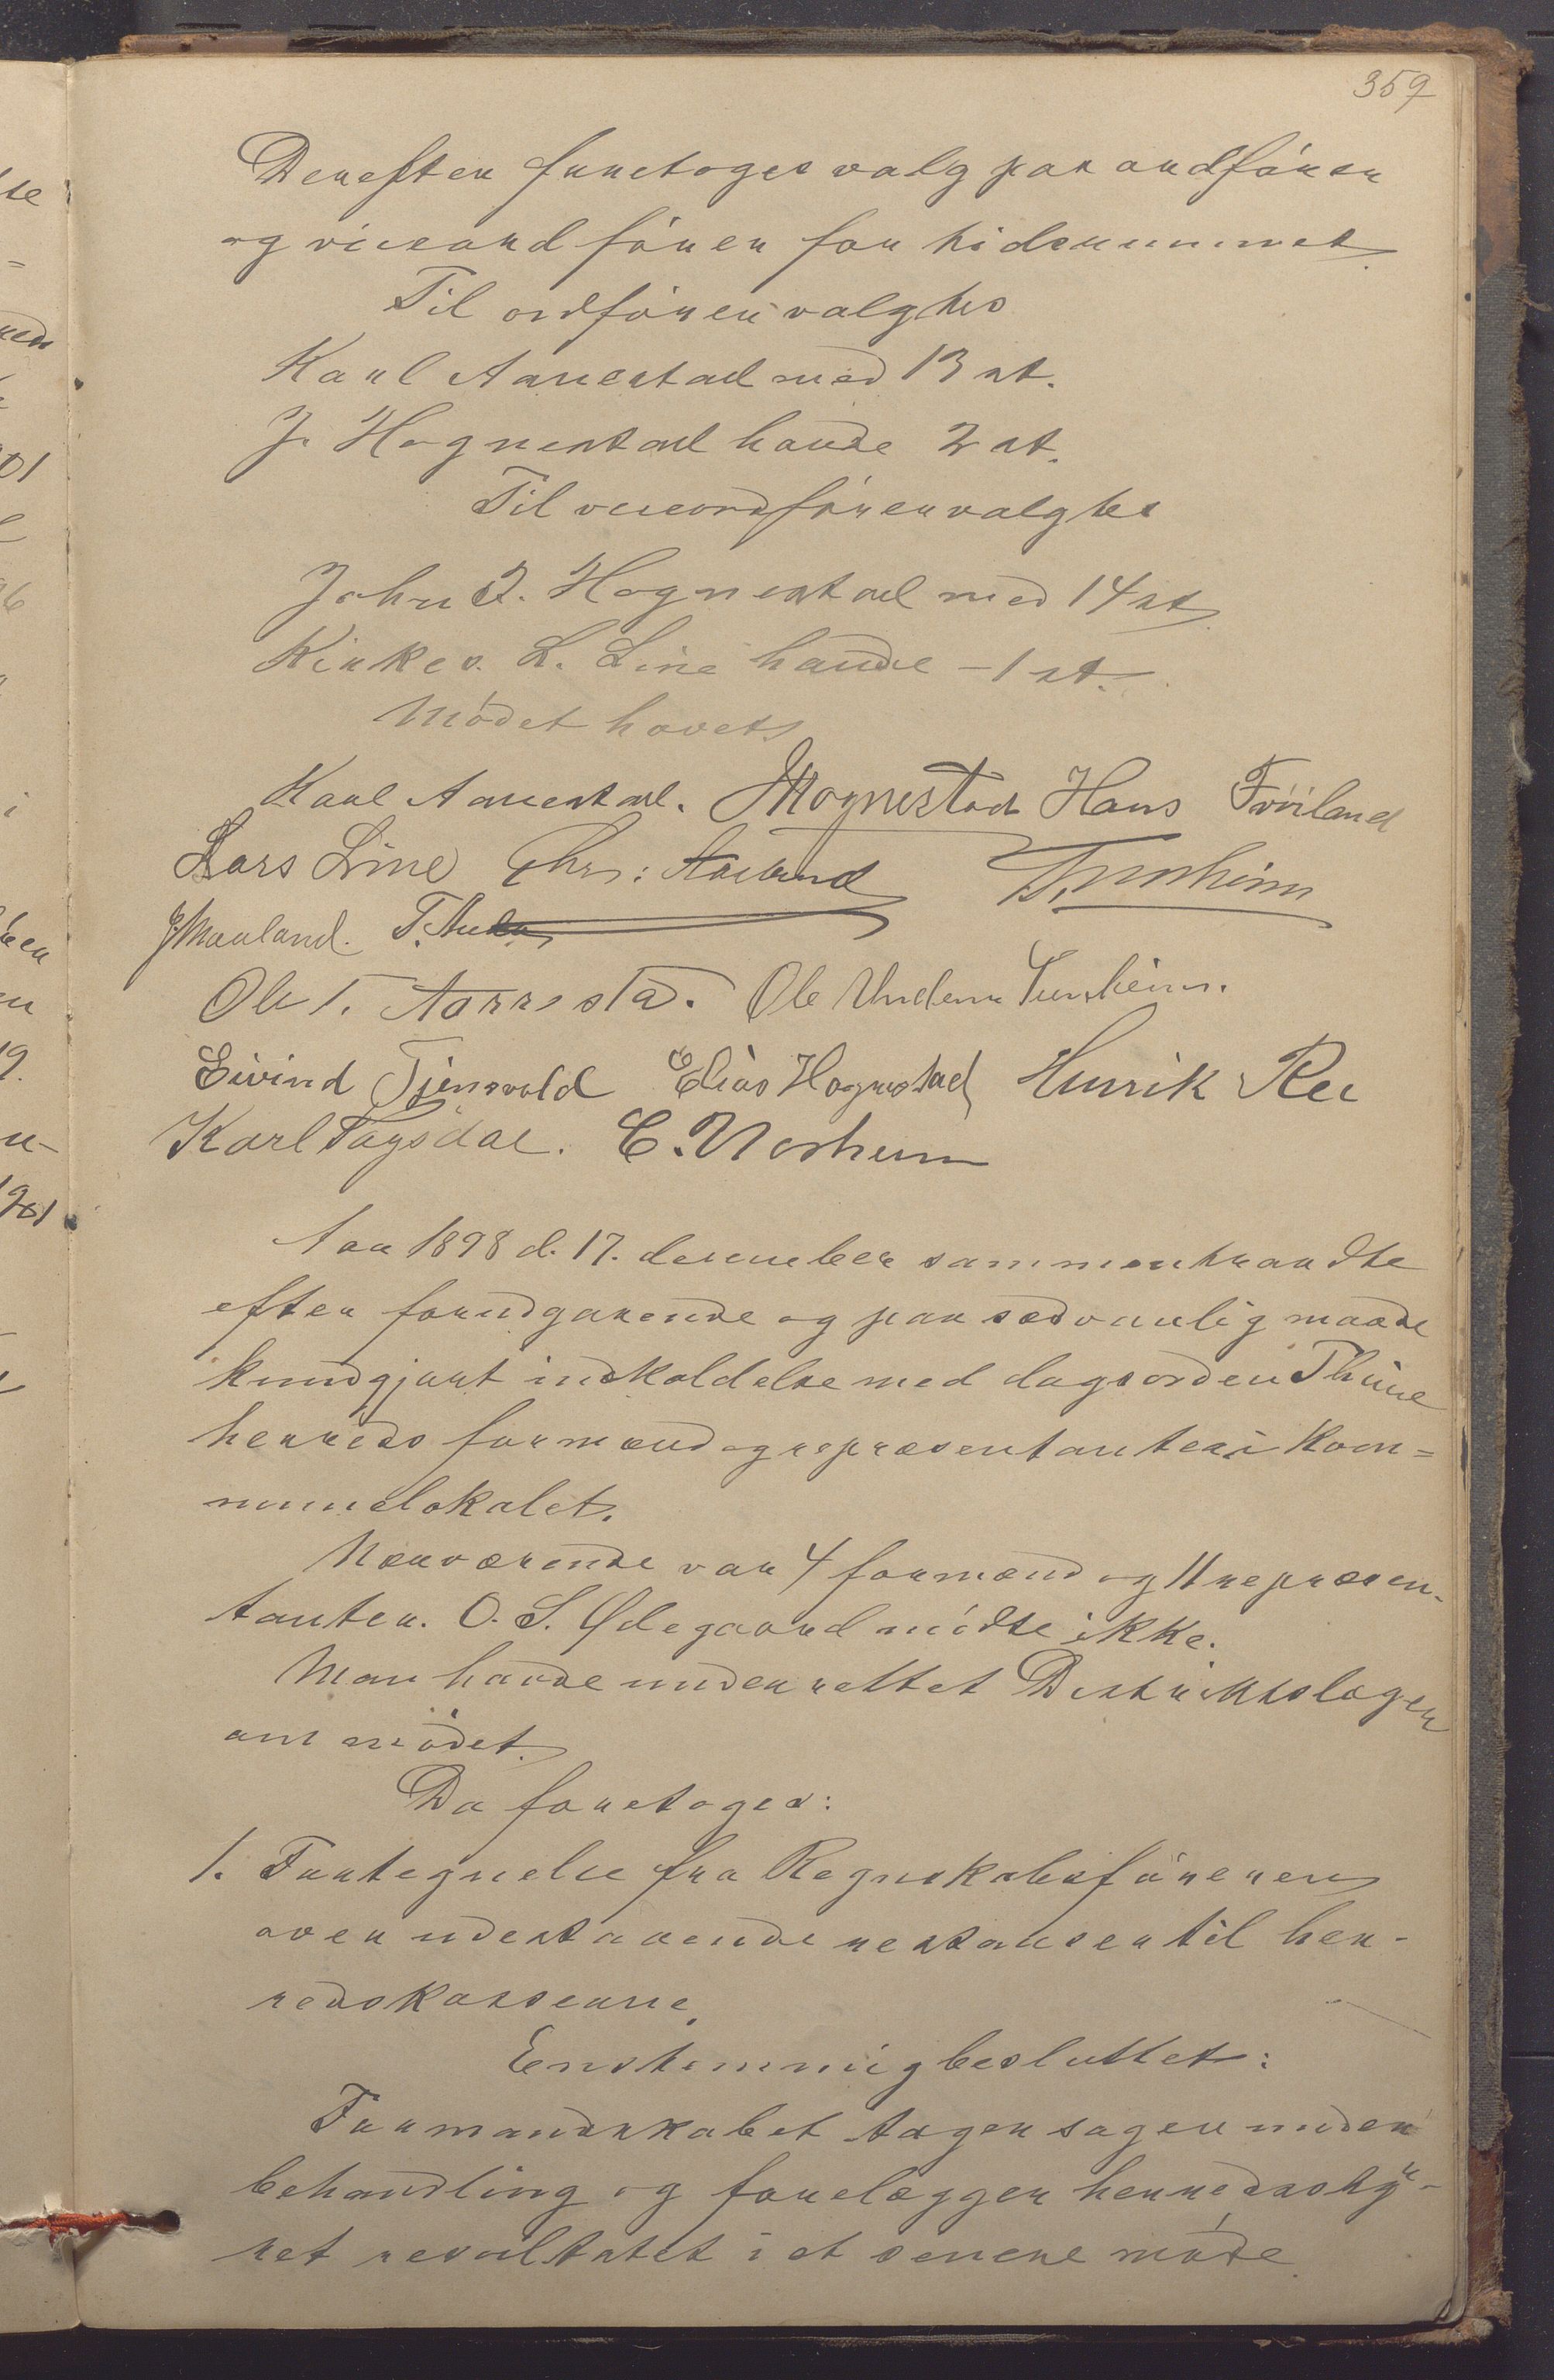 359
Derefter foretoges valg paa ordförer
og viceordförer for tidsrummet
Til ordförer valgtes
Karl Aarrestad med 13 st.
J. Hognestad havde 2 st.
Til viceordförer valgtes
John J. Hognestad med 14 st
Kirkes. L. Line havde - 1 st.
Mödet hævet.
Karl Aarrestad. J Hognestad Hans Fröiland
Lars Line Chr: Aasland T. Tunheim
J Mauland. T. Auk
Ole T. Aarrestad. Ole Undem Tunheim.
Eivind Tjensvold Elias Hognestad Henrik Ree
Karl Tagsdal. C. Norheim
Aar 1898 d. 17. december sammentraadte
efter forudgaaende og paa sedvanlig maade
kundgjort indkaldelse med dagsorden Thime
herreds formænd og repræsentanter i Kom=
munelokalet.
Nærværende var 4 formænd og 11 repræsen-
tanter. O. S. Ødegaard mödte ikke.
Man havde underrettet Distriktslægen
om mödet.
Da foretoges:
1. Fortegnelse fra Regnskabsföreren
over udestaaende restanser til her-
redskasserne.
Enstemmig besluttet:
Formandskabet tager sagen under
behandling og forelægger herredssty-
ret resultatet i et senere möde.
te
=
ned
01
96
i
ben
en
19.
n-
1901